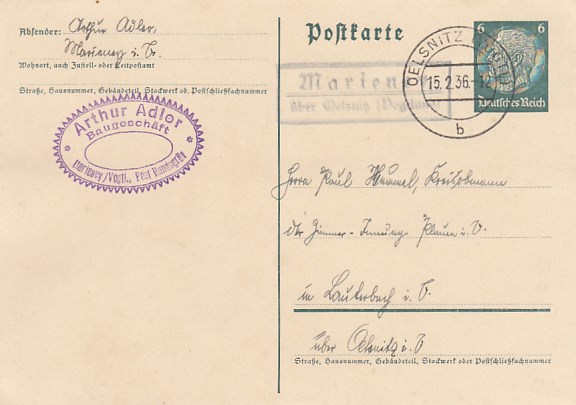 Absender: Arthur Adler,
Marieney i. V.
Wohnort, auch Zustell- oder Leitpostamt
Straße, Hausnummer, Gebäudeteil, Stockwerk od. Postschließfachnummer
Arthur Adler
Baugeschäft
Marieney/Vogtl., Post
Postkarte
6 6
Deutsches Reich
OELSNITZ (VOGTL)
15.2.36.-12
b
Marieney
über Oelsnitz (Vogtland)
Herrn Paul Hummel, Kreisobmann
der Zimmer-Innung Plauen i. V.
in Lauterbach i. V.
über Oelsnitz i. V
Straße, Hausnummer, Gebäudeteil, Stockwerk oder Postschließfachnummer